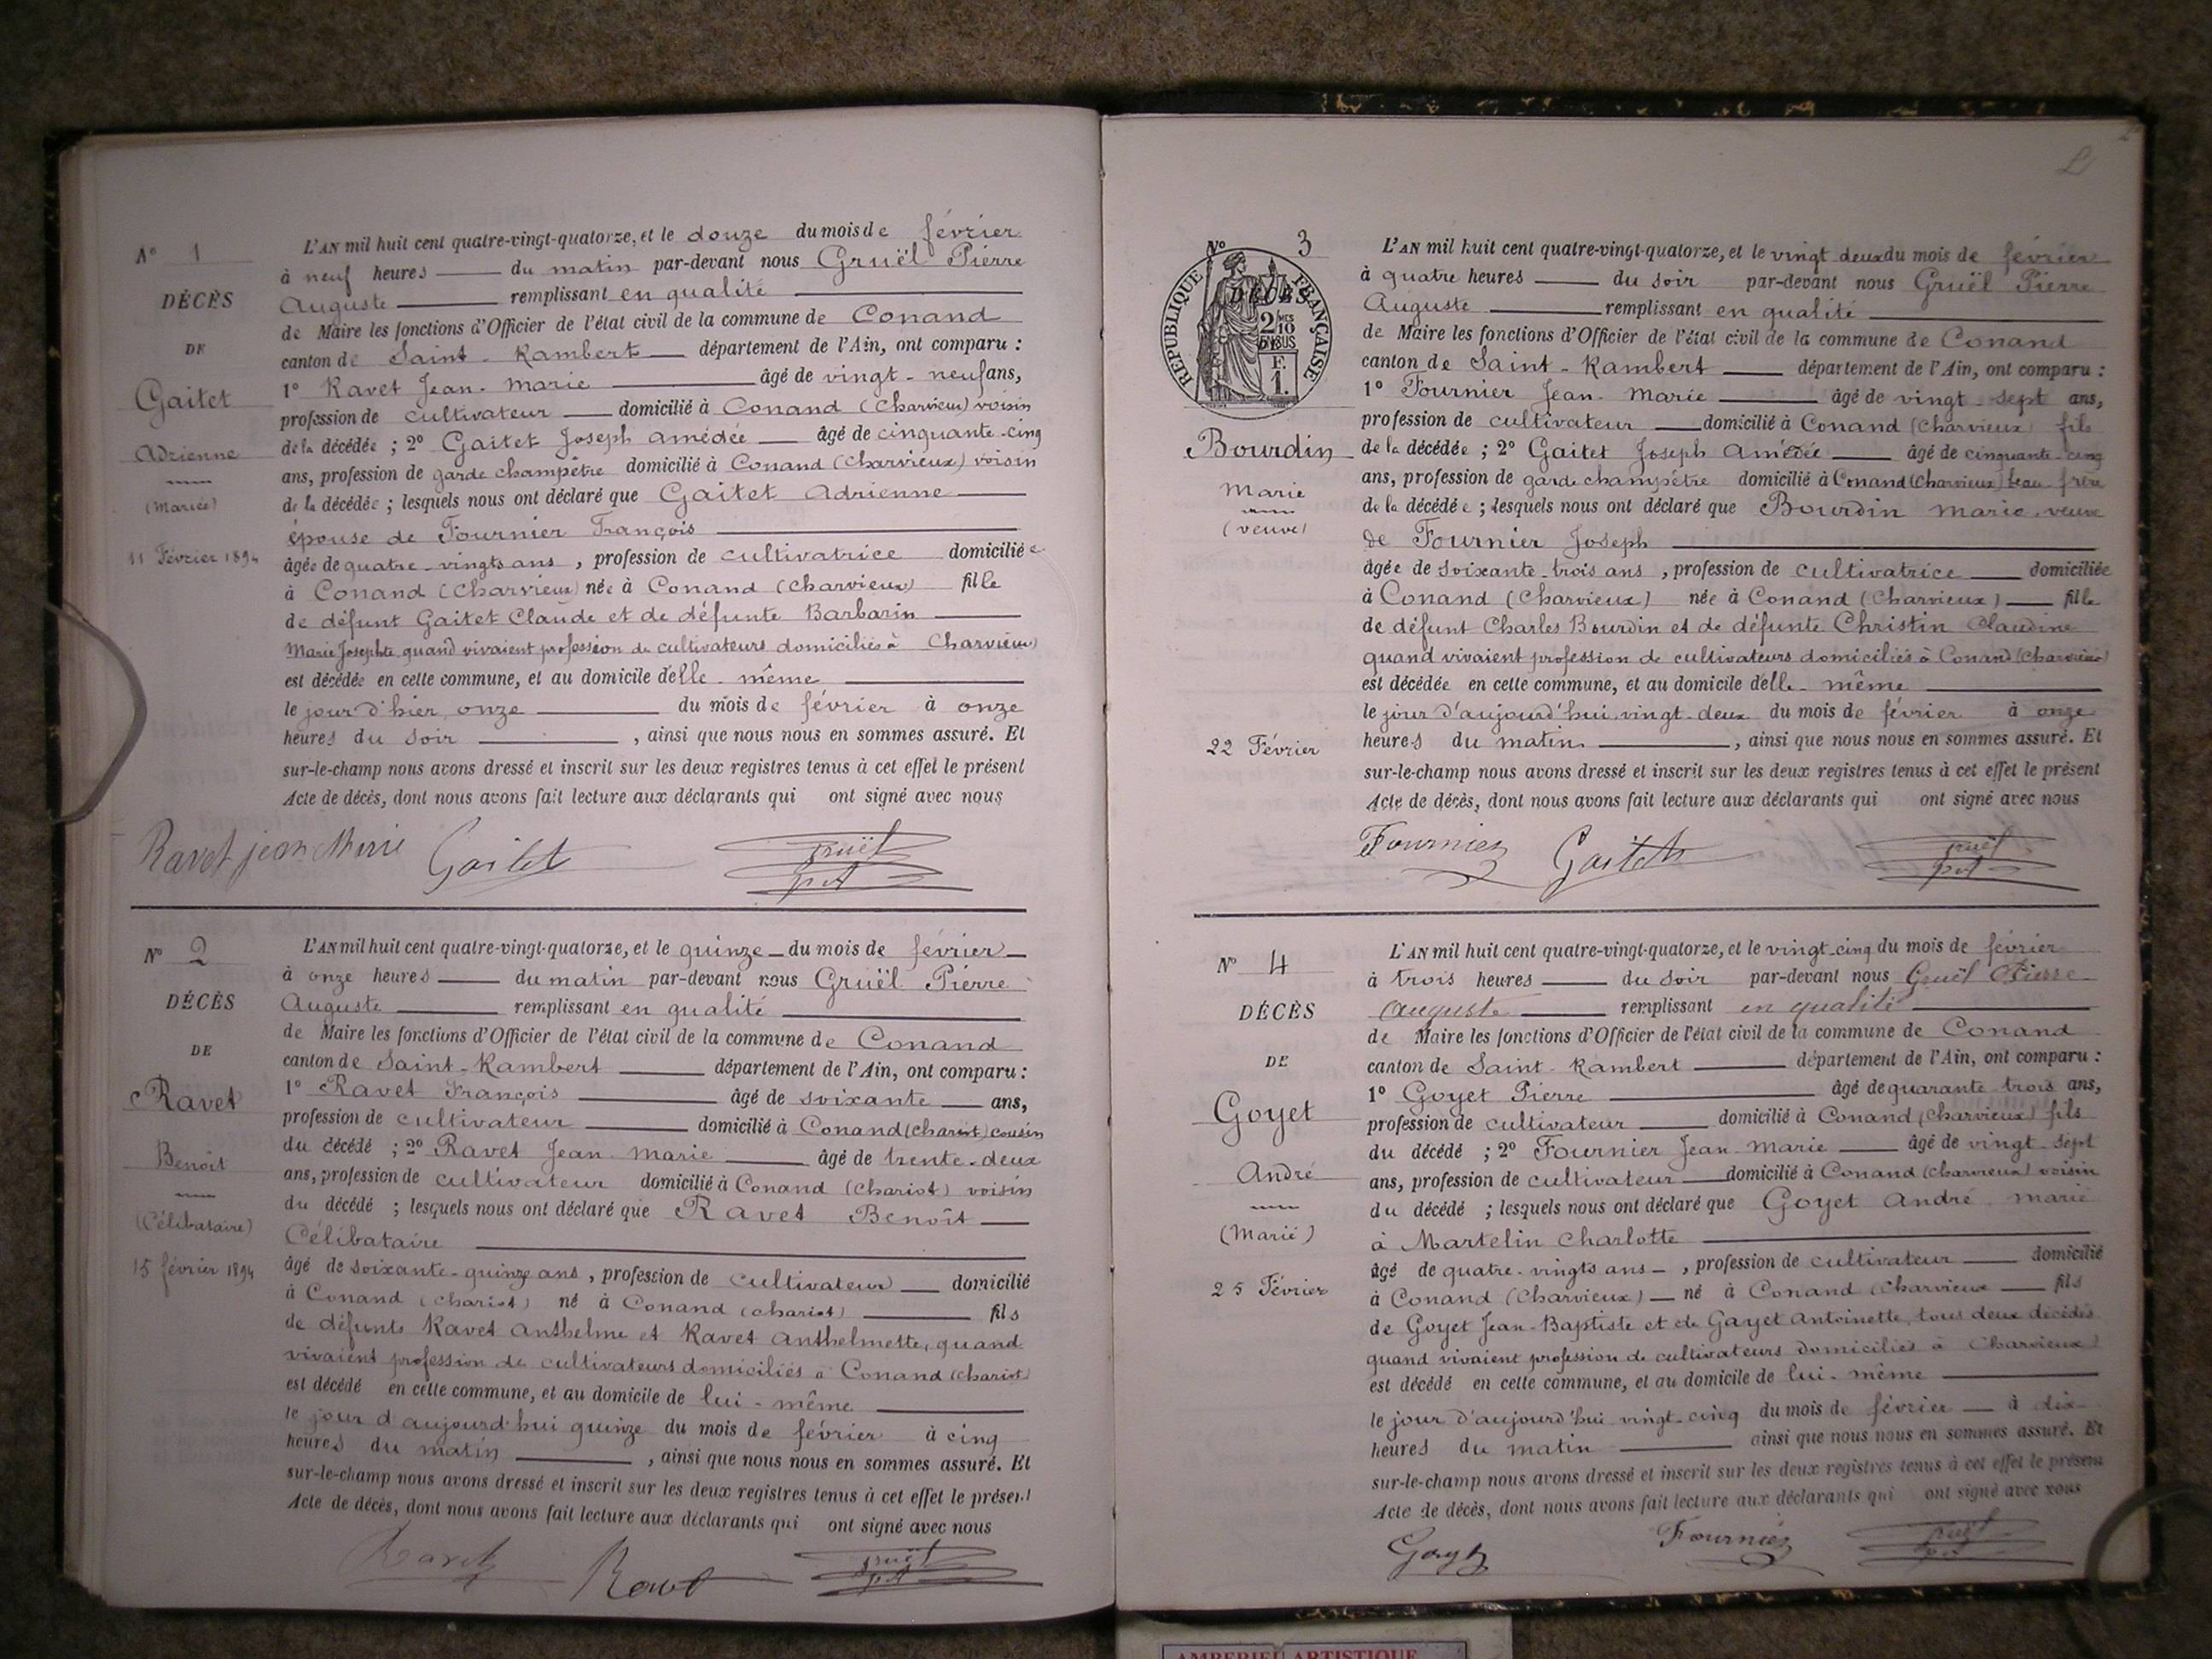 N° 1
DÉCÈS
DE
Gaitet
Adrienne
(Mariée)
11 Février 1894
L'AN mil huit cent quatre-vingt-quatorze, et le douze du mois de février
à neuf heures du matin par-devant nous Gruël Pierre
Auguste remplissant en qualité
de Maire les fonctions d'Officier de l'état civil de la commune de Conand
canton de Saint-Rambert département de l'Ain, ont comparu :
1° Ravet Jean-Marie âgé de vingt-neuf ans,
profession de cultivateur domicilié à Conand (Charvieux) voisin
de la décédée ; 2° Gaitet Joseph Amédée âgé de cinquante-cinq
ans, profession de garde champêtre domicilié à Conand (Charvieux) voisin
de la décédée ; lesquels nous ont déclaré que Gaitet Adrienne
épouse de Fournier François
âgée de quatre-vingts ans, profession de cultivatrice domiciliée
à Conand (Charvieux) née à Conand (Charvieux) fille
de défunt Gaitet Claude et de défunte Barbarin
Marie Josephte quand vivaient profession de cultivateurs domiciliés à Charvieux)
est décédée en cette commune, et au domicile d'elle-même
le jour d'hier onze du mois de février à onze
heures du soir , ainsi que nous nous en sommes assuré. Et
sur-le-champ nous avons dressé et inscrit sur les deux registres tenus à cet effet le présent
Acte de décès, dont nous avons fait lecture aux déclarants qui ont signé avec nous
Ravet jean Marie Gaitet Gruël
N° 2
DÉCÈS
DE
Ravet
Benoît
(Célibataire)
15 février 1894
L'AN mil huit cent quatre-vingt-quatorze, et le quinze du mois de février
à onze heures du matin par-devant nous Gruël Pierre
Auguste remplissant en qualité
de Maire les fonctions d'Officier de l'état civil de la commune de Conand
canton de Saint-Rambert département de l'Ain, ont comparu :
1° Ravet François âgé de soixante ans,
profession de cultivateur domicilié à Conand (Chariot) cousin
du décédé ; 2° Ravet Jean-Marie âgé de trente-deux
ans, profession de cultivateur domicilié à Conand (Chariot) voisin
du décédé ; lesquels nous ont déclaré que Ravet Benoît
Célibataire
âgé de soixante-quinze ans, profession de cultivateur domicilié
à Conand (Chariot) né à Conand (Chariot) fils
de défunts Ravet Anthelme et Ravet Anthelmette, quand
vivaient profession de cultivateurs domiciliés à Conand (Chariot)
est décédé en cette commune, et au domicile de lui-même
le jour d'aujourd'hui quinze du mois de février à cinq
heures du matin , ainsi que nous nous en sommes assuré. Et
sur-le-champ nous avons dressé et inscrit sur les deux registres tenus à cet effet le présent
Acte de décès, dont nous avons fait lecture aux déclarants qui ont signé avec nous
Ravet Ravet Gruël
2
N° 3
DÉCÈS
RÉPUBLIQUE FRANÇAISE
2/10 MES
EN SUS
F.
1.
Bourdin
Marie
(veuve)
22 Février
L'AN mil huit cent quatre-vingt-quatorze, et le vingt deux du mois de février
à quatre heures du soir par-devant nous Gruël Pierre
Auguste remplissant en qualité
de Maire les fonctions d'Officier de l'état civil de la commune de Conand
canton de Saint-Rambert département de l'Ain, ont comparu :
1° Fournier Jean-Marie âgé de vingt-sept ans,
profession de cultivateur domicilié à Conand (Charvieux) fils
de la décédée ; 2° Gaitet Joseph Amédée âgé de cinquante-cinq
ans, profession de garde champêtre domicilié à Conand (Charvieux) beau-frère
de la décédée ; lesquels nous ont déclaré que Bourdin Marie, veuve
de Fournier Joseph
âgée de soixante-trois ans, profession de cultivatrice domiciliée
à Conand (Charvieux) née à Conand (Charvieux) fille
de défunt Charles Bourdin et de défunte Christin Claudine
quand vivaient profession de cultivateurs domiciliés à Conand (Charvieux)
est décédée en cette commune, et au domicile d'elle-même
le jour d'aujourd'hui vingt-deux du mois de février à onze
heures du matin , ainsi que nous nous en sommes assuré. Et
sur-le-champ nous avons dressé et inscrit sur les deux registres tenus à cet effet le présent
Acte de décès, dont nous avons fait lecture aux déclarants qui ont signé avec nous
Fournier Gaitet Gruël
N° 4
DÉCÈS
DE
Goyet
André
(Marié)
25 Février
L'AN mil huit cent quatre-vingt-quatorze, et le vingt-cinq du mois de février
à trois heures du soir par-devant nous Gruël Pierre
Auguste remplissant en qualité
de Maire les fonctions d'Officier de l'état civil de la commune de Conand
canton de Saint-Rambert département de l'Ain, ont comparu :
1° Goyet Pierre âgé de quarante-trois ans,
profession de cultivateur domicilié à Conand (Charvieux) fils
du décédé ; 2° Fournier Jean-Marie âgé de vingt-sept
ans, profession de cultivateur domicilié à Conand (Charvieux) voisin
du décédé ; lesquels nous ont déclaré que Goyet André marié
à Martelin Charlotte
âgé de quatre-vingts ans, profession de cultivateur domicilié
à Conand (Charvieux) né à Conand (Charvieux fils
de Goyet Jean-Baptiste et de Gayet Antoinette, tous deux décédés
quand vivaient profession de cultivateurs domiciliés à Charvieux)
est décédé en cette commune, et au domicile de lui-même
le jour d'aujourd'hui vingt-cinq du mois de février à dix
heures du matin ainsi que nous nous en sommes assuré. Et
sur-le-champ nous avons dressé et inscrit sur les deux registres tenus à cet effet le présent
Acte de décès, dont nous avons fait lecture aux déclarants qui ont signé avec nous
Goyet Fournier Gruël
AMBERIEU ARTISTIQUE